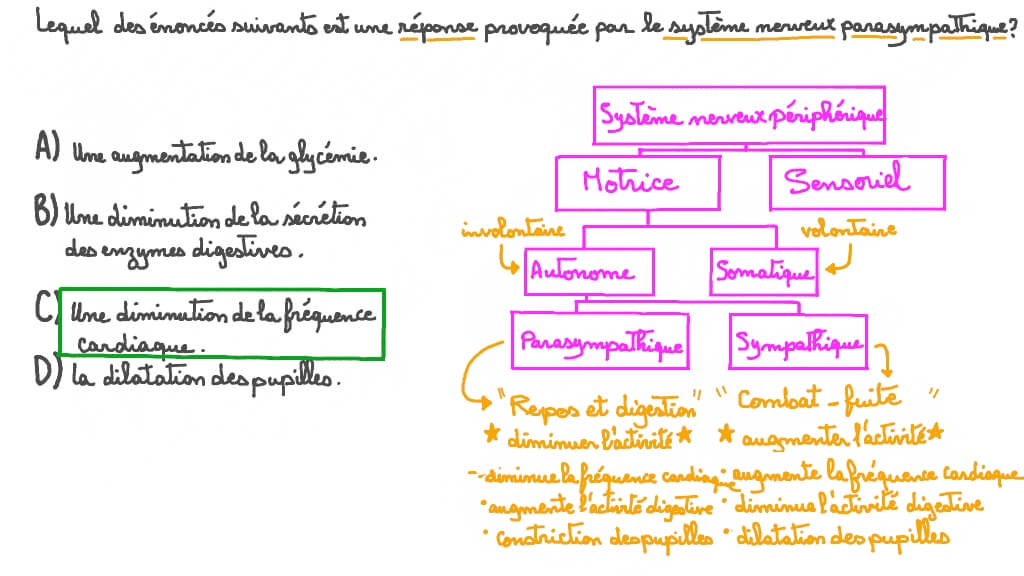 Lequel des énoncés suivants est une réponse provoquée par le système nerveux parasympathique?
A) Une augmentation de la glycémie.
B) Une diminution de la sécrétion
des enzymes digestives.
C) Une diminution de la fréquence
cardiaque.
D) la dilatation des pupilles.
Système nerveux périphérique
Motrice
Sensoriel
involontaire
volontaire
Autonome
Somatique
Parasympathique
Sympathique
"Repos et digestion"
★ diminuer l'activité ★
-- diminue la fréquence cardiaque
• augmente l'activité digestive
• constriction des pupilles
"Combat - fuite"
★ augmenter l'activité ★
• augmente la fréquence cardiaque
• diminue l'activité digestive
• dilatation des pupilles